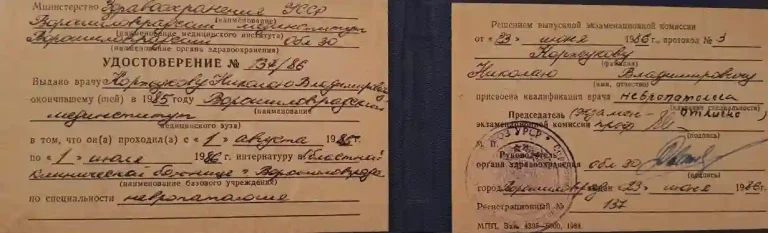 Министерство Здравоохранения УССР
Ворошиловградский мединститут
(наименование медицинского института)
Ворошиловградский обл ЗО
(наименование органа здравоохранения)
УДОСТОВЕРЕНИЕ № 137/86
Выдано врачу Коржукову Николаю Владимировичу
окончившему (шей) в 1985 году Ворошиловградский
(наименование
мединститут
медицинского вуза)
в том, что он(а) проходил(а) с «1» августа 1985 г.
по «1» июля 1986 г. интернатуру в Областной
клинической больнице г. Ворошиловграда
(наименование базового учреждения)
по специальности невропатология
Решением выпускной экзаменационной комиссии
от «23» июня 1986 г., протокол № 3
Коржукову
(фамилия)
Николаю Владимировичу
(имя, отчество)
присвоена квалификация врача невропатолога
(название специальности)
Председатель (экзамен - отлично)
экзаменационной комиссии проф
(подпись)
М. П.
Руководитель
органа здравоохранения обл ЗО
(подпись)
город Ворошиловград «23» июня 1986 г.
Регистрационный № 137